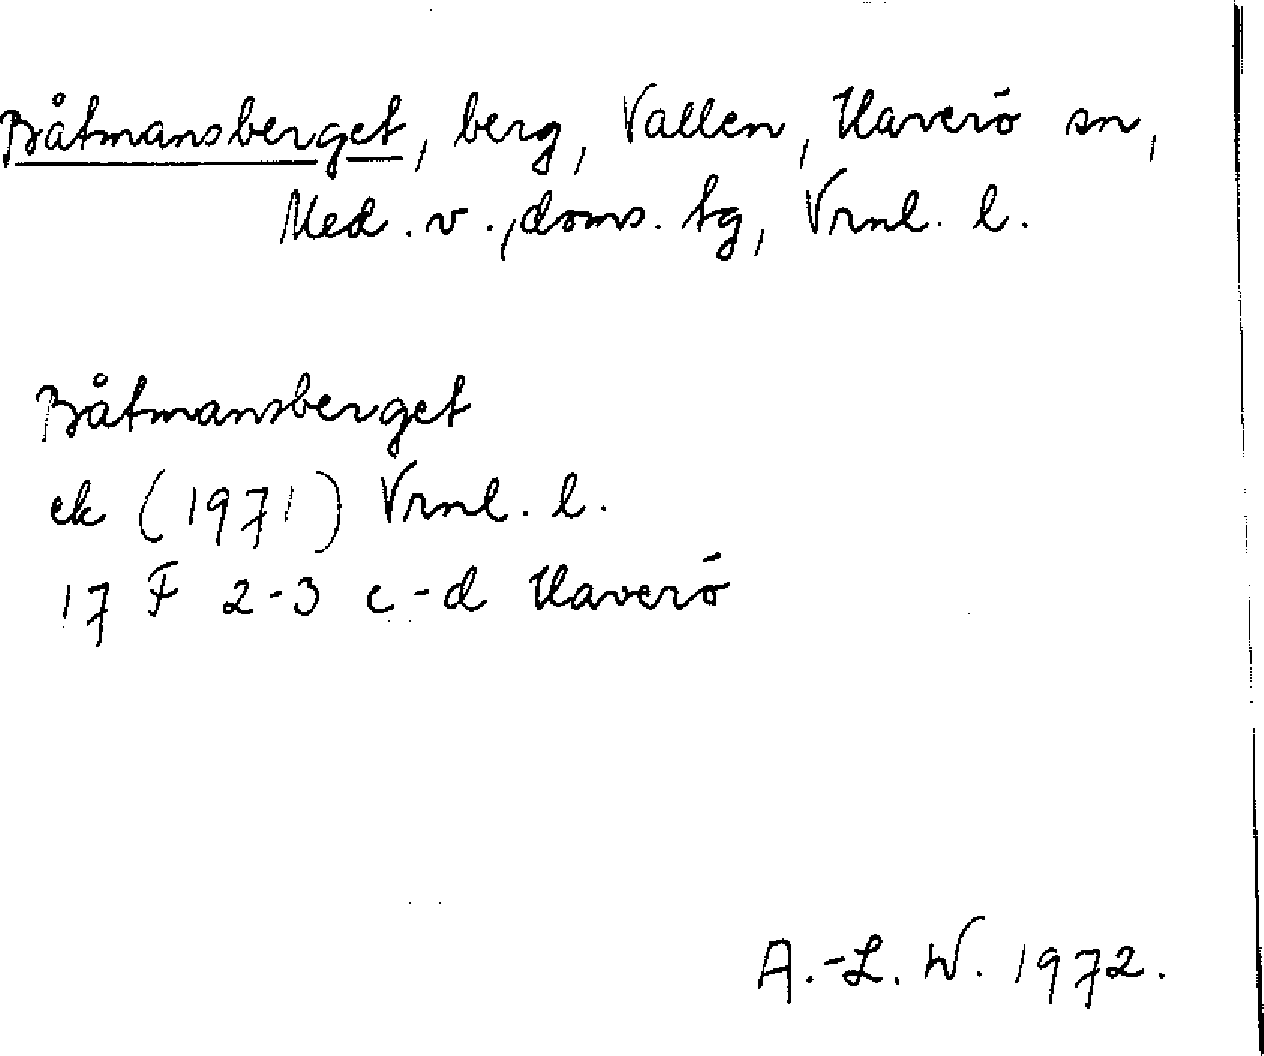 Båtmansberget, berg, Vallen, Haverö sn,
Med. v., doms. tg, Vrnl. l.
Båtmansberget
ek (1971) Vrnl. l.
17 F 2-3 c-d Haverö
A.-L. W. 1972.